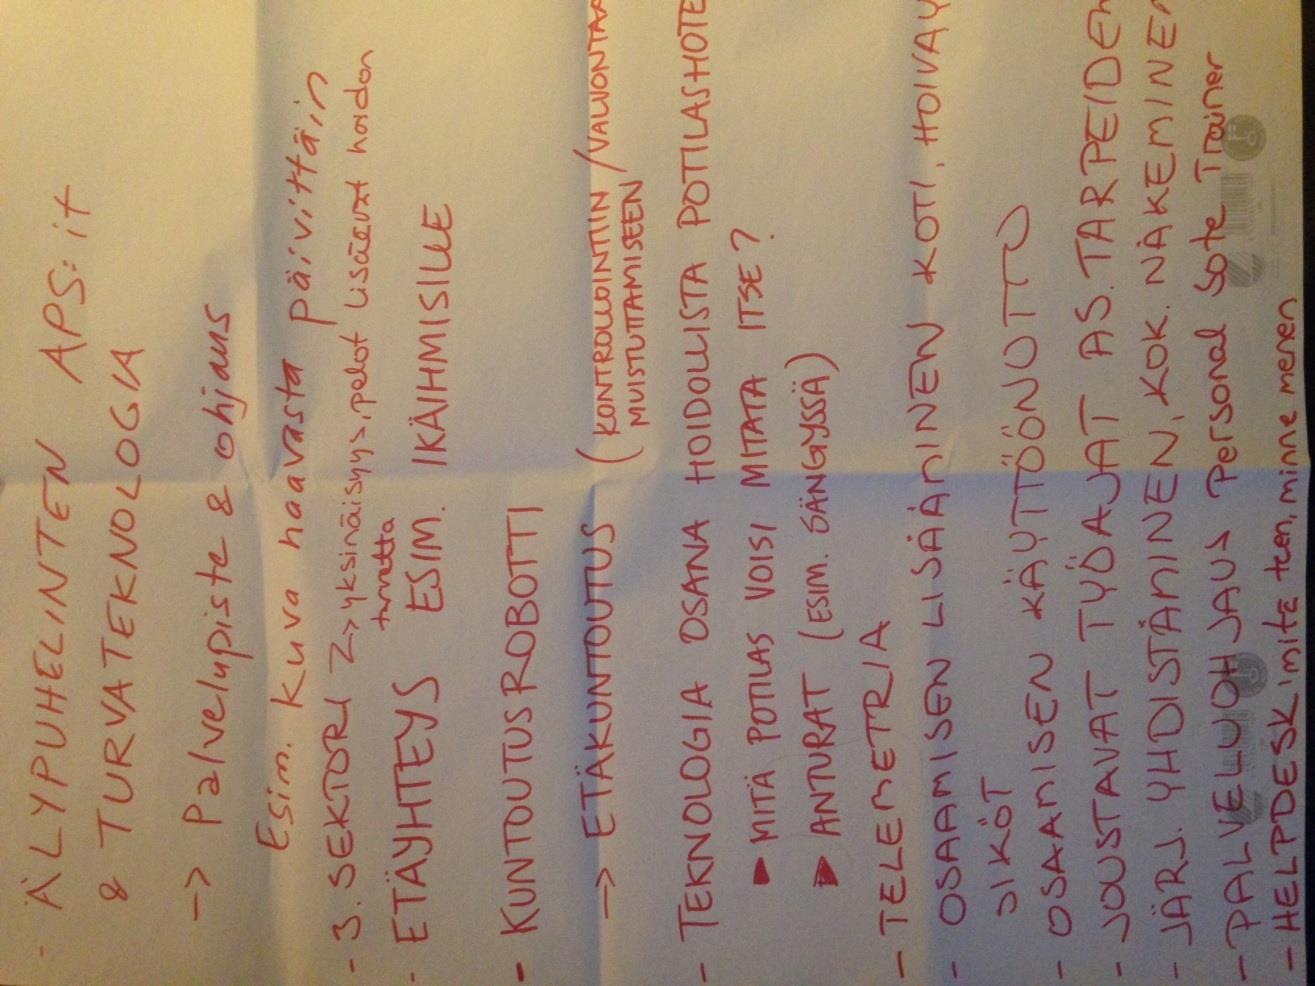 - ÄLYPUHELINTEN APS:it
& TURVATEKNOLOGIA
-> Palvelupiste & ohjaus
Esim. kuva haavasta päivittäin
- 3. SEKTORI -> yksinäisyys, pelot lisäävät hoidon
tarvetta
- ETÄYHTEYS ESIM. IKÄIHMISILLE
- KUNTOUTUSROBOTTI
-> ETÄKUNTOUTUS (KONTROLLOINTIIN /VALVONTAA
MUISTUTTAMISEEN
- TEKNOLOGIA OSANA HOIDOLLISTA POTILASHOTE
► MITÄ POTILAS VOISI MITATA ITSE?
► ANTURAT (ESIM. SÄNGYSSÄ)
- TELEMETRIA
- OSAAMISEN LISÄÄMINEN KOTI, HOIVAY
SIKÖT
- OSAAMISEN KÄYTTÖÖNOTTO
- JOUSTAVAT TYÖAJAT AS. TARPEIDEN
- JÄRJ. YHDISTÄMINEN, KOK. NÄKEMINEN
- PALVELUOHJAUS Personal Sote Trainer
- HELPDESK, mitä teen, minne menen